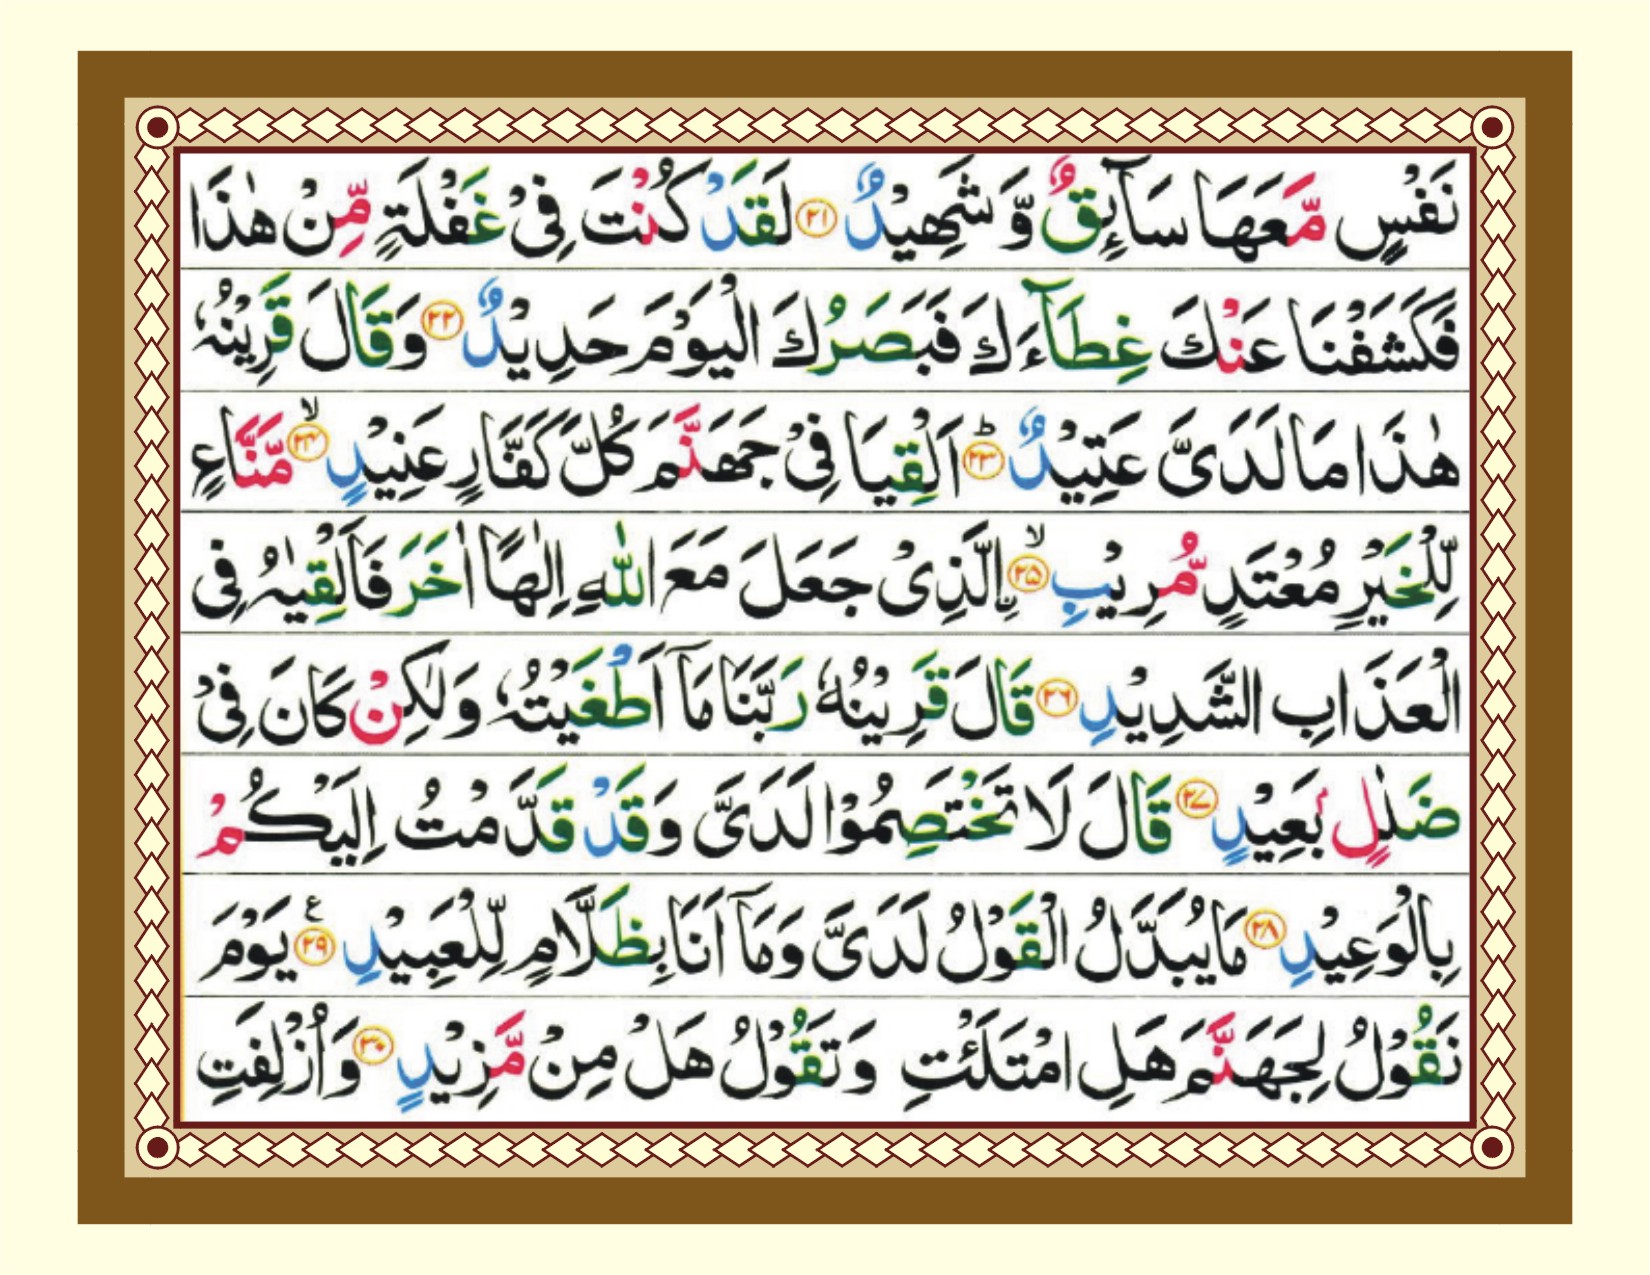 نَفْسٍ مَّعَهَا سَآئِقٌ وَّ شَهِيْدٌ ﴿۲۱﴾ لَقَدْ كُنْتَ فِیْ غَفْلَةٍ مِّنْ هٰذَا
فَكَشَفْنَا عَنْكَ غِطَآءَكَ فَبَصَرُكَ الْيَوْمَ حَدِيْدٌ ﴿۲۲﴾ وَقَالَ قَرِيْنُهٗ
هٰذَا مَا لَدَیَّ عَتِيْدٌ ﴿۲۳﴾ؕ اَلْقِيَا فِیْ جَهَنَّمَ كُلَّ كَفَّارٍ عَنِيْدٍ ﴿۲۴﴾ۙ مَّنَّاعٍ
لِّلْخَيْرِ مُعْتَدٍ مُّرِيْبِ ﴿۲۵﴾ۙ ِۨالَّذِیْ جَعَلَ مَعَ اللّٰهِ اِلٰهًا اٰخَرَ فَاَلْقِيٰهُ فِی
الْعَذَابِ الشَّدِيْدِ ﴿۲۶﴾ قَالَ قَرِيْنُهٗ رَبَّنَا مَاۤ اَطْغَيْتُهٗ وَلٰكِنْ كَانَ فِیْ
ضَلٰلٍۭ بَعِيْدٍ ﴿۲۷﴾ قَالَ لَا تَخْتَصِمُوْا لَدَیَّ وَقَدْ قَدَّمْتُ اِلَيْكُمْ
بِالْوَعِيْدِ ﴿۲۸﴾ مَا يُبَدَّلُ الْقَوْلُ لَدَیَّ وَمَاۤ اَنَا بِظَلَّامٍ لِّلْعَبِيْدِ ﴿۲۹﴾ ع يَوْمَ
نَقُوْلُ لِجَهَنَّمَ هَلِ امْتَلَئْتِ وَتَقُوْلُ هَلْ مِنْ مَّزِيْدٍ ﴿۳۰﴾ وَاُزْلِفَتِ